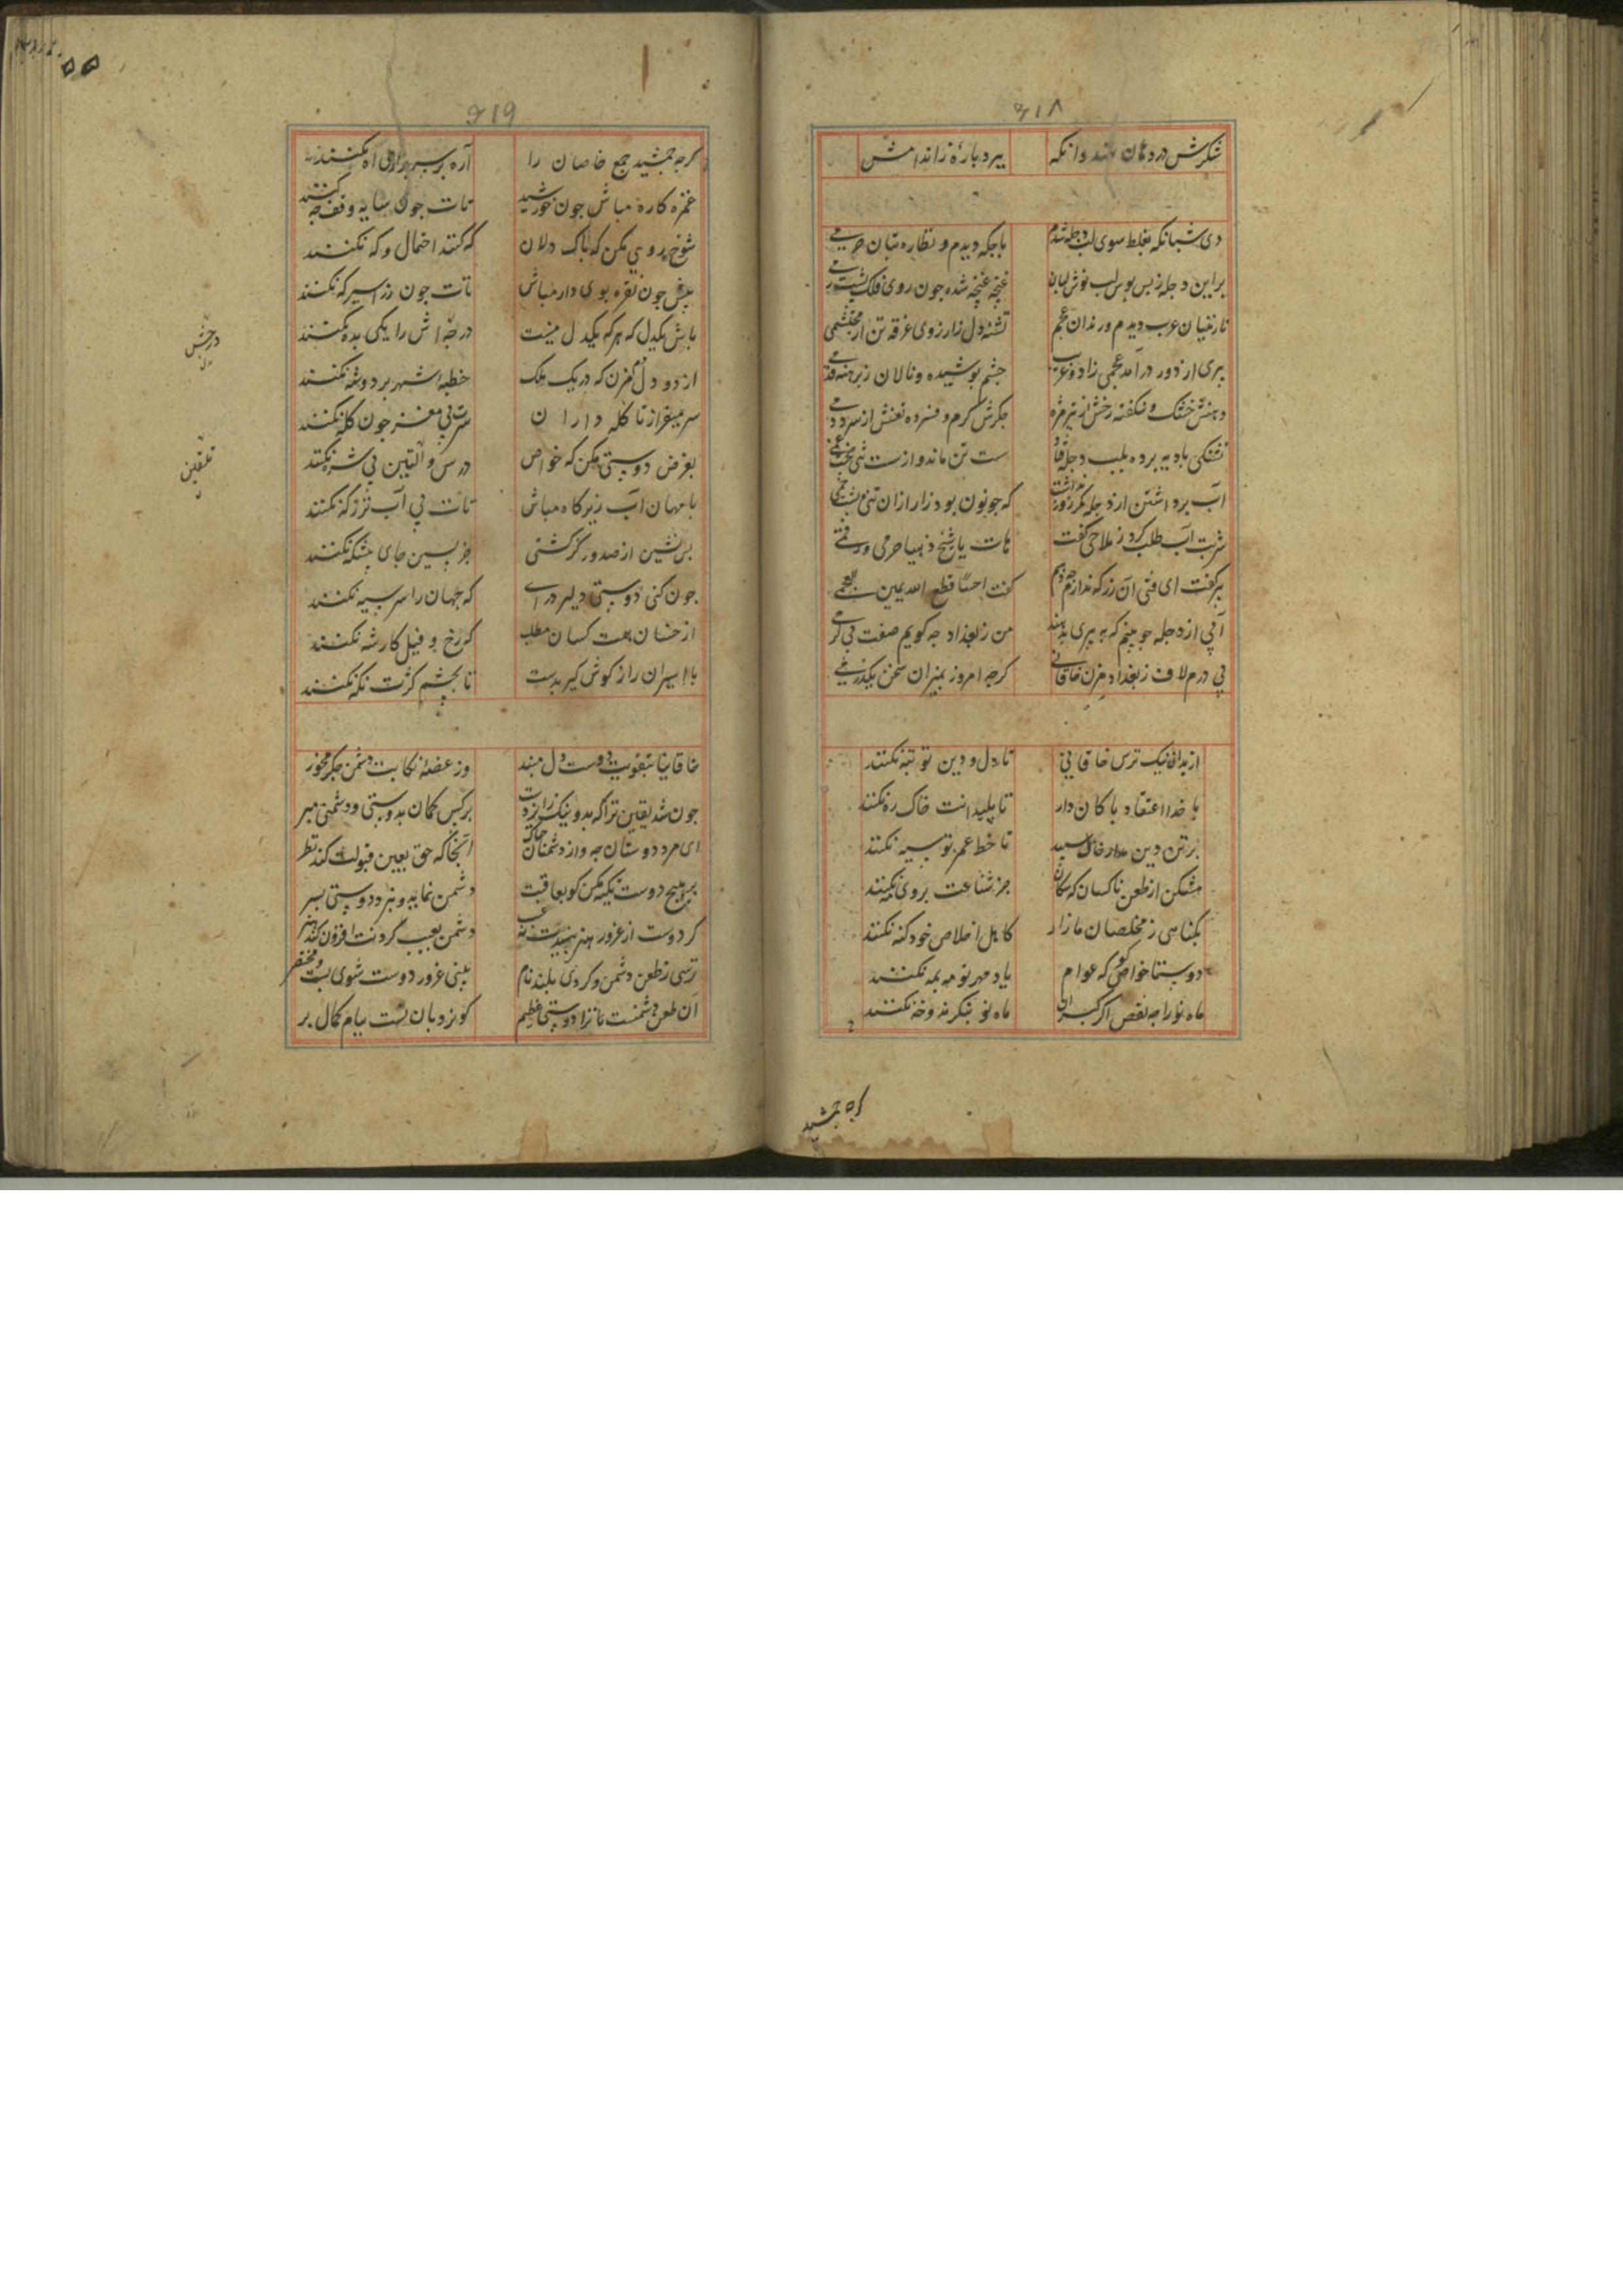 ۶۱۸
شکرش در دهان نهد وانکه ببرد باره زاندامش
دی شبانکه بغلط سوی لب دجله شدم باجکه دیدم و نظاره بتان حرمی
بر این دجله ز بس بوس لب نوش لبان غنچه غنچه شده جون روی فلک پشت زمی
نازنینان عرب دیدم و رندان عجم تشنه دل ز ارزوی غرقه تن از محتشمی
پیری از دور در آمد عجمی زاد و غریب جشم پوشیده و نالان ز برهنه قدمی
دهنش خشک و شکفته رخش از تیر مژه جکرش کرم و فسرده نفسش از سرد دمی
تشنکی بادیه برده بلب دجله فتاد سست تن مانده و از سست تنی سخت غمی
آب برداشتن از دجله مکر زور نداشت که جو نون بود زار از ان تن بشت خمی
شربت آب طلب کرد ز ملاحی کفت هات یا شیخ ذهیبا حرمی ورقتی
پیر کفت ای فتی آن زر که ندارم جه دهم کفت اخسا قطع الله یمین العجمی
آبی از دجله جو بینم که به پیری ندهند من ز بغداد جه کویم صفت بی کرمی
بی درم لاف ز بغداد مزن خاقانی کرجه امروز بمیزان سخن یکدرمی
از بدان نیک ترس خاقانی تا دل و دین تو تبه نکنند
با خدا اعتقاد باکان دار تا پلیدانت خاک ره نکنند
برتن دین مدار خاک سپید تا خط عمر تو سیه نکنند
مشکن از طعن ناکسان که سکان جز شناعت بروی مه نکنند
بکناهی ز مخلصان مازار کاهل اخلاص خود کنه نکنند
دوستا خواص کو که عوام یاد مهر تو مه بمه نکنند
ماه نو راجه نقص اکر کبران ماه نو بنکرند و خه نکنند
کرجه جمشید
۶۱۹
کرجه جمشید جمع خاصان را آره بر سر برادی اه نکنند
غمزه کاره مباش جون خورشید تات جون سایه وقف جه نکنند
شوخ رویی مکن که باک دلان که کنند احتمال و که نکنند
پیش جون نقره بوی دار مباش تات جون زر اسیر که نکنند
باش یکدل که هر که یکدل نیست درجه اش را یکی بده نکنند
از دو دل دم مزن که در یک ملک خطبه شهر بر دو شه نکنند
سر میفراز تا کله داران سرت بی مغز جون کله نکنند
بغرض دوستی مکن که خواص درس والتین بی شره نکنند
با مهان آب زیر کاه مباش تات بی آب تر ز که نکنند
پس نشین از صدور کز کشتی جز پسین جای پیشکه نکنند
جون کنی دوستی دلیر در آی که جهان را سر سپه نکنند
از خسان همت کسان مطلب که رخ و فیل کار شه نکنند
با اسیران راز کوش کیر بدست تا بچشم کژت نکه نکنند
درجش
تلقین
خاقانیا بتقویت دوست دل مبند وز غصه نکایت دشمن جکر مخور
بر کس کمان بدوستی و دشمنی مبر جون شد یقین تراکه بد و نیک زایزدست
ای مرد دوستان جه و از دشمنان جه باک آنجا که حق بعین قبولت کند نظر
بر هیچ دوست تکیه مکن کو بعاقبت دشمن نماید و نبرد دوستی بسر
کر دوست از غرور هنر بیندت نه عیب دشمن بعیب کردنت افزون کند هنر
ترسی ز طعن دشمن و کردی بلند نام بینی غرور دوست شوی پست و مختصر
آن طعن دشمنست ترا دوستی عظیم کو نردبان تست ببام کمال بر